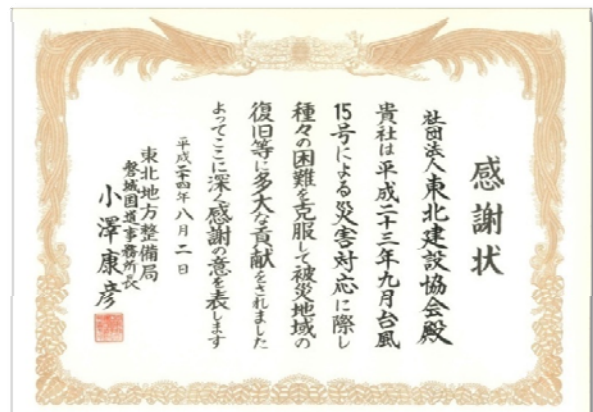 感謝状
社団法人東北建設協会殿
貴社は平成二十三年九月台風
15号による災害対応に際し
種々の困難を克服して被災地域の
復旧等に多大な貢献をされました
よってここに深く感謝の意を表します
平成二十四年八月二日
東北地方整備局
磐城国道事務所長
小澤康彦